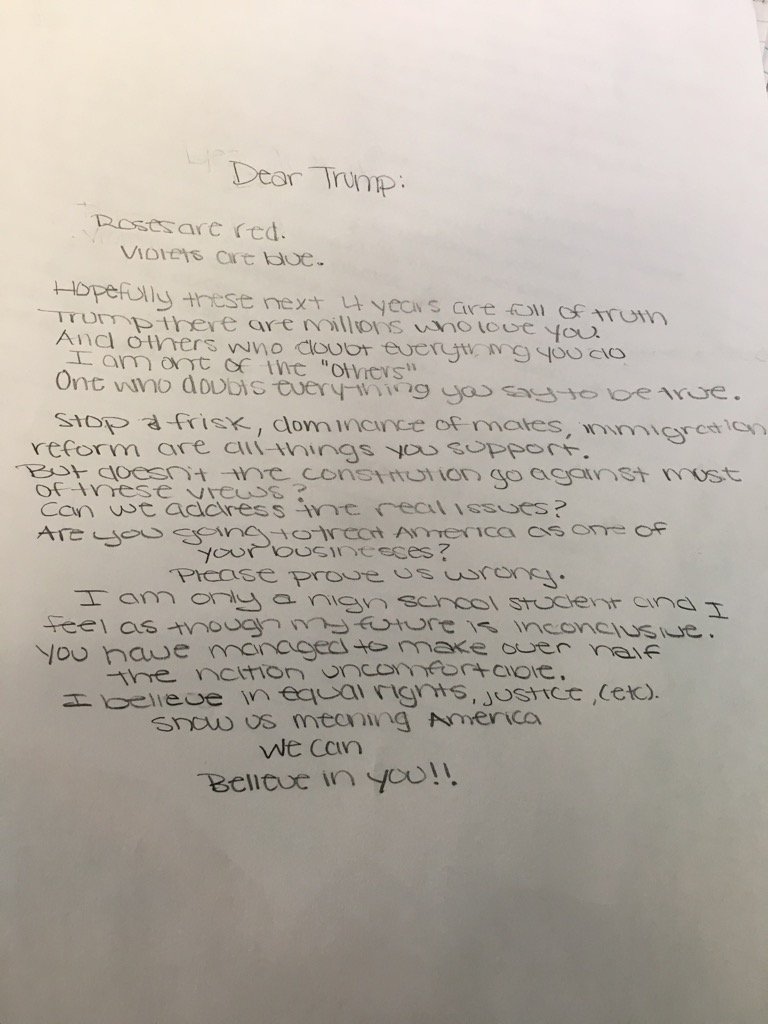 Dear Trump:
Roses are red.
Violets are blue.
Hopefully these next 4 years are full of truth
Trump there are millions who love you.
And others who doubt everything you do
I am one of the "others"
One who doubts everything you say to be true.
Stop & frisk, dominance of males, immigration
reform are all things you support.
But doesn't the constitution go against most
of these views?
Can we address the real issues?
Are you going to treat America as one of
your businesses?
Please prove us wrong.
I am only a high school student and I
feel as though my future is inconclusive.
You have managed to make over half
the nation uncomfortable.
I believe in equal rights, justice, (etc).
Show us meaning America
We can
Believe in you!!